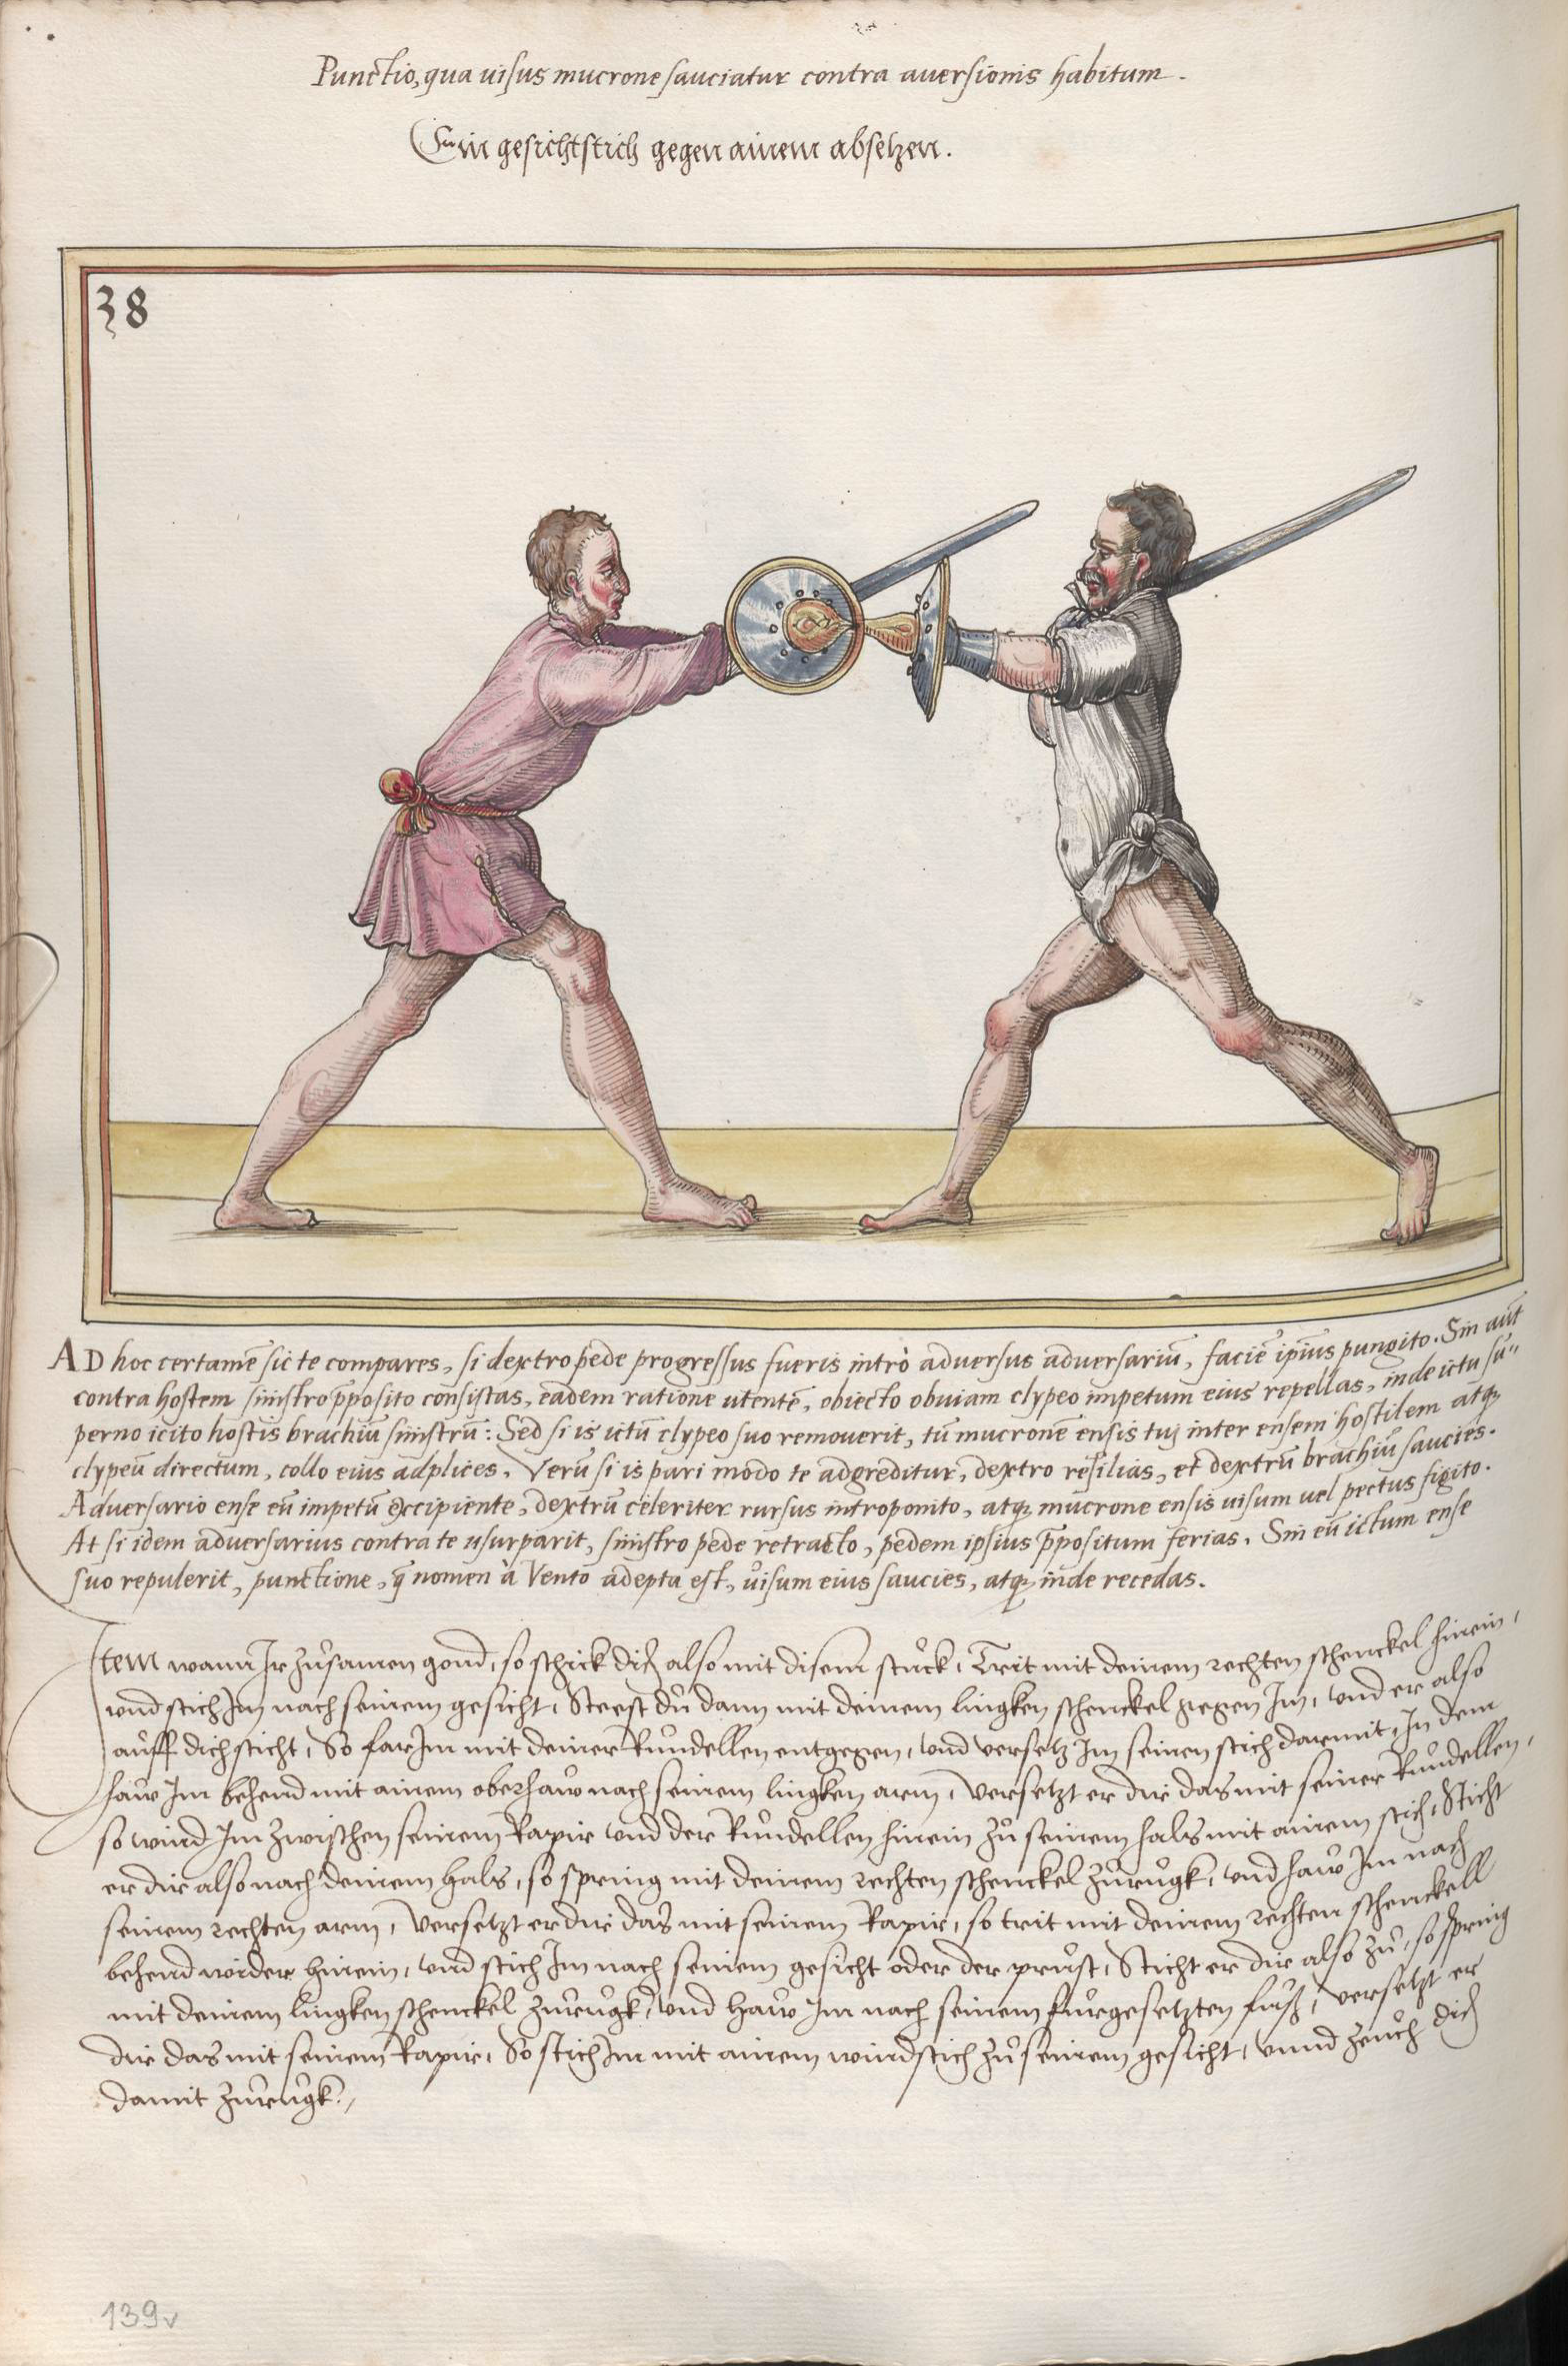 Punctio, qua uisus mucrone sauciatur contra auersionis habitum.
Ein gesichtstich gegen ainem absetzen.
38
AD hoc certamē sic te compares, si dextro pede progressus fueris intrò aduersus aduersariū, faciē ipīus pungito. Sin aūt
contra hostem sinistro p̄posito consistas, eadem ratione utentē, obiecto obuiam clypeo impetum eius repellas, inde ictu su"
perno icito hostis brachiū sinistrū: Sed si is ictū clypeo suo remouerit, tū mucronē ensis tuj inter ensem hostilem atq̄
clypeū directum, collo eius adplices. Verū si is pari modo te adgreditur, dextro resilias, et dextrū brachiū saucies.
Aduersario ense eū impetū excipiente, dextrū celeriter rursus introponito, atq̄ mucrone ensis uisum uel pectus figito.
At si idem aduersarius contra te usurparit, sinistro pede retracto, pedem ipsius p̄positum ferias. Sin eū ictum ense
suo repulerit, punctione, q̄ nomen à Vento adepta est, uisum eius saucies, atq̄ inde recedas.
Item wann Ir zůsamen gond, so schick dich also mit disem stuck, Trit mit deinem rechten schenckel hinein,
vnd stich Im nach seinem gesicht, Steest dů dann mit deinem lingken schenckel gegen Im, vnd er also
auff dich sticht, So far Im mit deiner Rundellen entgegen, vnd versetz Im seinen stich darmit, In dem
haw Im behend mit ainem oberhaw nach seinem lingken arm, versetzt er dir das mit seiner Rundellen,
so wind Im zwischen seinem Rapir vnd der Rundellen hinein zů seinem hals mit ainem stich, Sticht
er dir also nach deinem hals, so spring mit deinem rechten schenckel zůrugk, vnd haw Im nach
seinem rechten arm, versetzt er dir das mit seinem Rapir, so trit mit deinem rechten schenckell
behend wider hinein, vnd stich Im nach seinem gesicht oder der prust, Sticht er dir also zů, so spring
mit deinem lingken schenckel zurugk, vnd haw Im nach seinem furgesetzten fuß, versetzt er
dir das mit seinem Rapir, So stich Im mit ainem windstich zů seinem gesicht, vnnd zeuch dich
damit zurugk.
139v